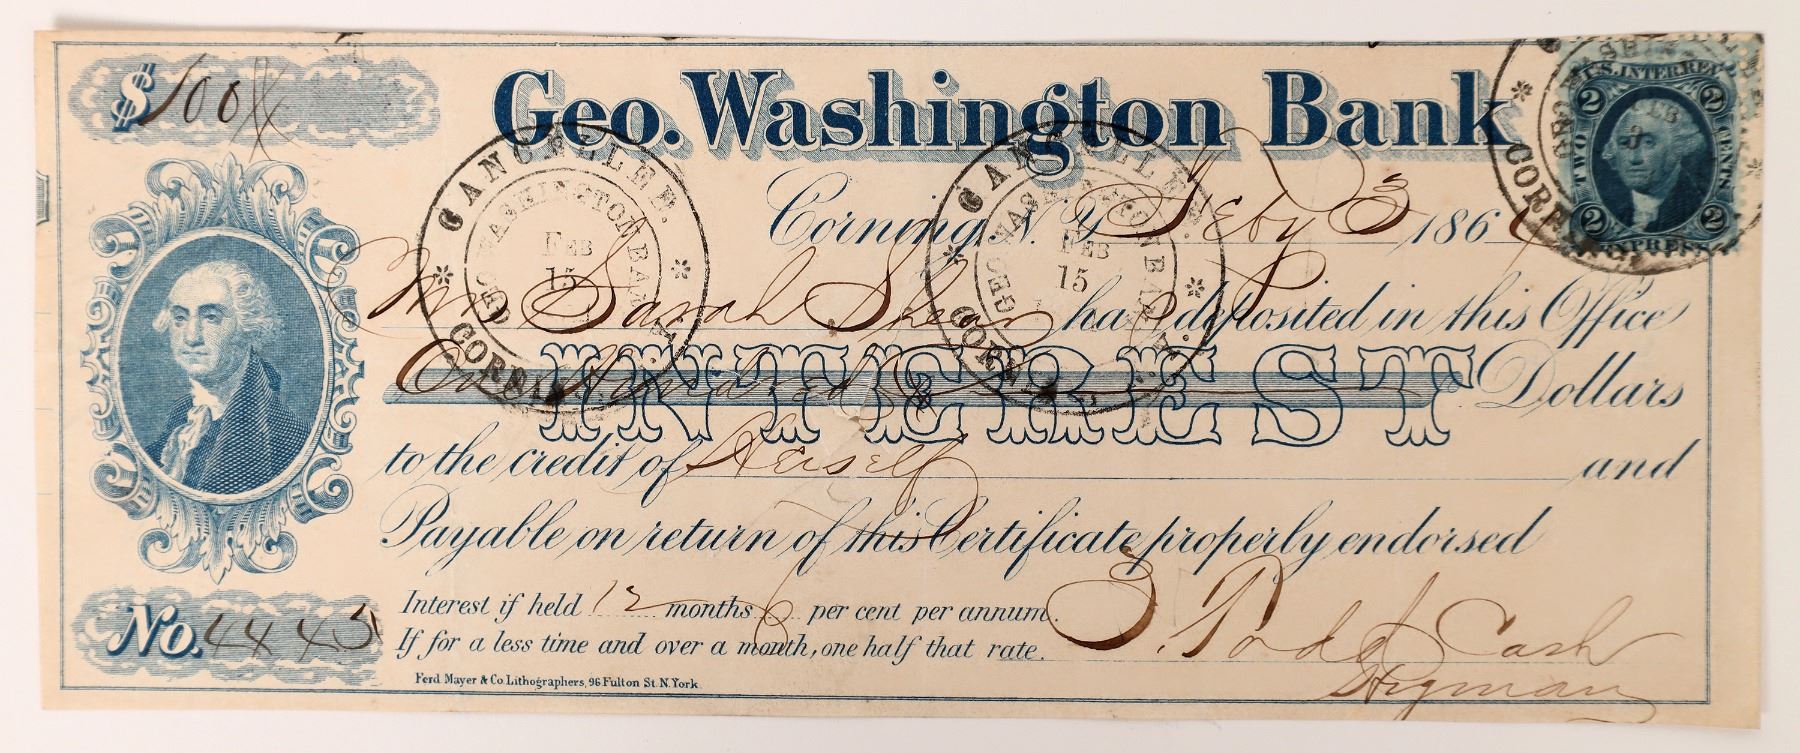 $ 100
Geo. Washington Bank
Corning, N.Y. Feby 3 186
Mrs Sarah Shean has deposited in this Office
One Hundred Dollars
INTEREST
to the credit of Herself and
Payable on return of this Certificate properly endorsed
No. 4443
Interest if held 12 months 6 per cent per annum.
If for a less time and over a month, one half that rate.
Todd Cash
Ferd Mayer & Co. Lithographers, 96 Fulton St. N.York.
CANCELLED.
GEO WASHINGTON BANK
FEB
15
CORNING
CANCELLED.
GEO WASHINGTON BANK
FEB
15
CORNING
U.S. INTER. REV.
2 2
TWO CENTS
2 2
EXPRESS
FEB
CORNING